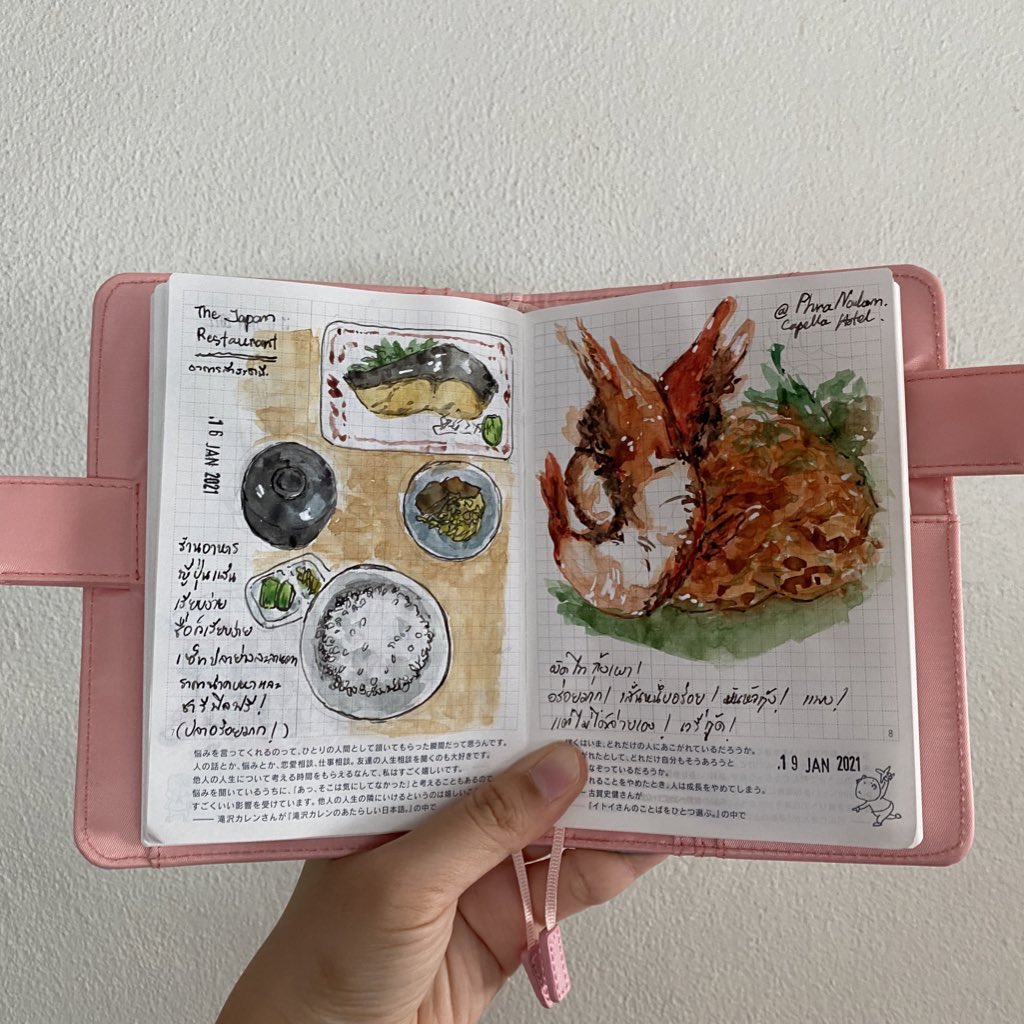 The Japan
Restaurant
16 JAN 2021
ร้านอาหาร
ญี่ปุ่นแสน
เรียบง่าย
ชื่อก็เรียบง่าย
(ปลาอร่อยมาก!)
悩みを言ってくれるのって、ひとりの人間として頷いてもらった瞬間だって思うんです。
人の話とか、悩みとか、恋愛相談、仕事相談。友達の人生相談を聞くのも大好きです。
他人の人生について考える時間をもらえるなんて、私はすごく嬉しいです。
悩みを聞いているうちに、「あっ、そこは気にしてなかった」と考えることもあるので
すごくいい影響を受けています。他人の人生の隣にいけるというのは嬉しいこ
——滝沢カレンさんが『滝沢カレンのあたらしい日本語。』の中で
@ Phra Nakorn.
Capella Hotel.
ผัดไทกุ้งเผา!
อร่อยมาก! เส้นหนึบอร่อย! มันหัวกุ้ง! แพง!
แต่ไม่ได้จ่ายเอง! เวรี่กู้ด!
8
19 JAN 2021
くはいま、どれだけの人にあこがれているだろうか。
がれたとして、どれだけ自分もそうあろうと
なぞっているだろうか。
れることをやめたとき、人は成長をやめてしまう。
古賀史健さんが
『イトイさんのことばをひとつ選ぶ。』の中で